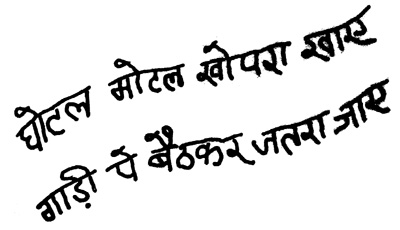 घोटल मोटल खोपरा खाए
गाड़ी पे बैठकर जतरा जाए